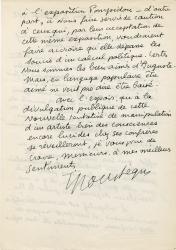 à l'exposition Pompidou — d'autre
part, à nous faire servir de caution
à ceux qui, par leur acceptation de
cette même exposition, voudraient
faire accroire qu'elle dépasse les
soucis d'un calcul politique. Certes
nous sommes les bien aimés d'
Mais, en langage populaire, être
aimé ne veut pas être baisé.
avec l'espoir que la
divulgation publique de cette
nouvelle tentative de manipulation
d'un artiste bien des consciences
encore lucides chez ses confrères
se réveilleront, je vous prie de
croire, messieurs, à mes meilleurs
sentiments